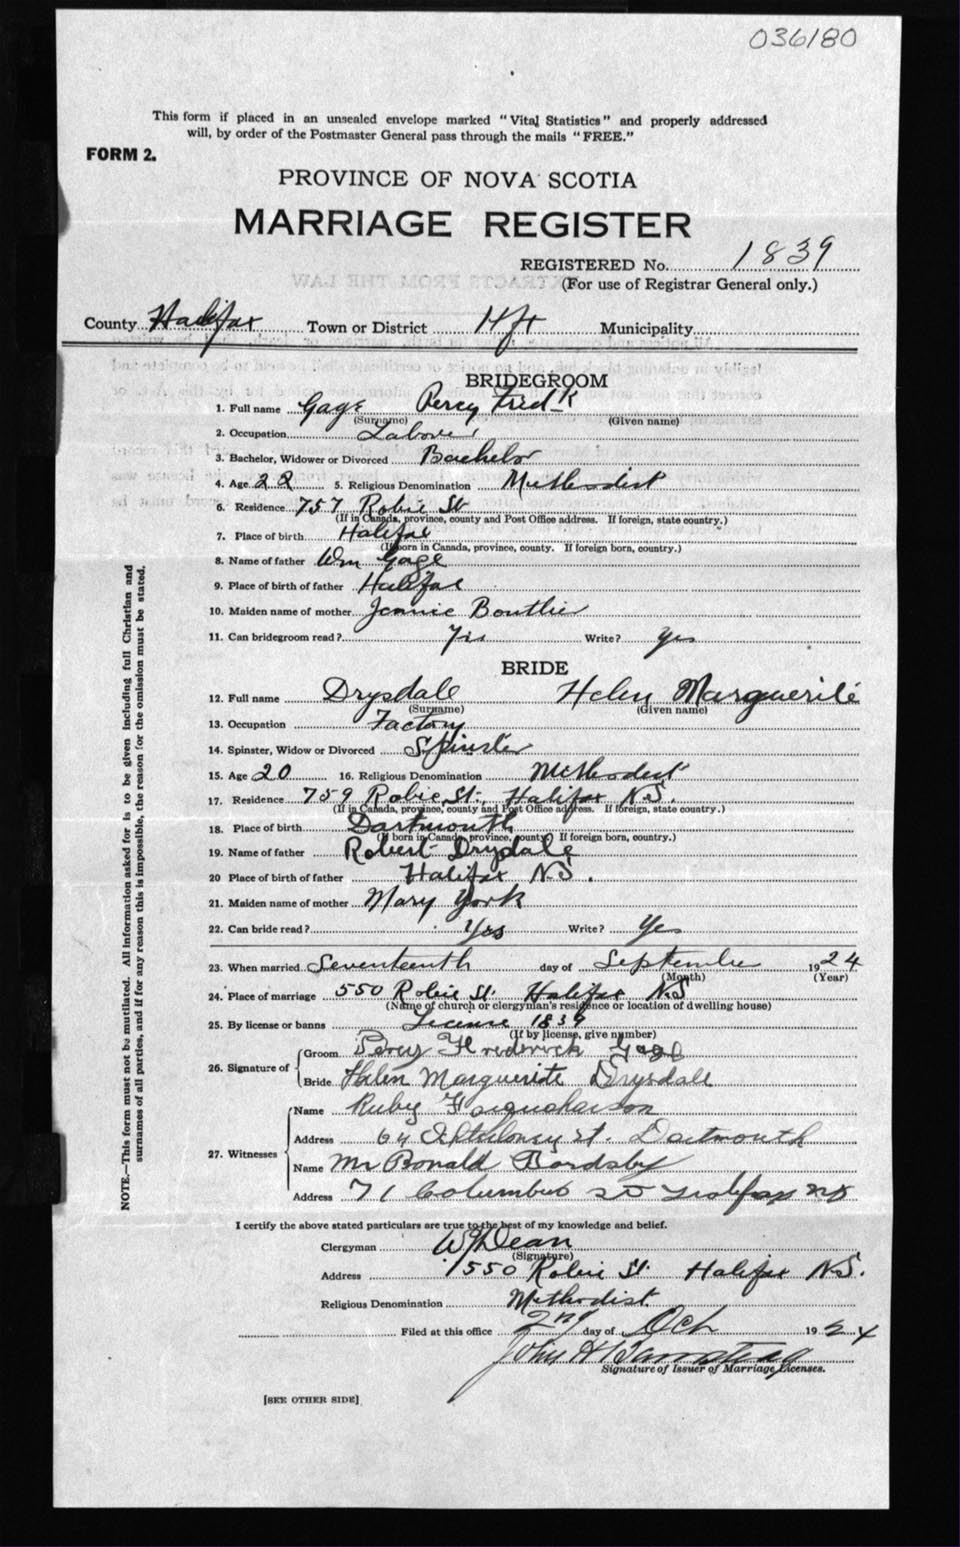 036180
This form if placed in an unsealed envelope marked "Vital Statistics" and properly addressed
will, by order of the Postmaster General pass through the mails "FREE."
FORM 2.
PROVINCE OF NOVA SCOTIA
MARRIAGE REGISTER
REGISTERED No. 1839
(For use of Registrar General only.)
County Halifax Town or District Hfx Municipality
BRIDEGROOM
1. Full name Gage Percy Fred-k
(Surname) (Given name)
2. Occupation Laborer
3. Bachelor, Widower or Divorced Bachelor
4. Age 22 5. Religious Denomination Methodist
6. Residence 757 Robie St
(If in Canada, province, county and Post Office address. If foreign, state country.)
7. Place of birth Halifax
(If born in Canada, province, county. If foreign born, country.)
8. Name of father Wm Gage
9. Place of birth of father Halifax
10. Maiden name of mother Jennie Boutlier
11. Can bridegroom read? Yes Write? Yes
BRIDE
12. Full name Drysdale Helen Marguerite
(Surname) (Given name)
13. Occupation Factory
14. Spinster, Widow or Divorced Spinster
15. Age 20 16. Religious Denomination Methodist
17. Residence 759 Robie St., Halifax N.S.
(If in Canada, province, county and Post Office address. If foreign, state country.)
18. Place of birth Dartmouth
(If born in Canada, province, county. If foreign born, country.)
19. Name of father Robert Drysdale
20 Place of birth of father Halifax N.S.
21. Maiden name of mother Mary York
22. Can bride read? Yes Write? Yes
23. When married Seventeenth day of September 1924
(Month) (Year)
24. Place of marriage 550 Robie St Halifax N.S
(Name of church or clergyman's residence or location of dwelling house)
25. By license or banns License 1839
(If by license, give number)
26. Signature of
Groom Percy Frederick Gage
Bride Helen Marguerite Drysdale
27. Witnesses
Name Ruby Farquharson
Address 64 St. Dartmouth
Name Mr Ronald Bardsby
Address 71 Columbus St Halifax NS
I certify the above stated particulars are true to the best of my knowledge and belief.
Clergyman Dean
(Signature)
Address 550 Robie St. Halifax N.S.
Religious Denomination Methodist
Filed at this office 2nd day of Oct 1924
John H
Signature of Issuer of Marriage Licenses.
[SEE OTHER SIDE]
NOTE.—This form must not be mutilated. All information asked for is to be given including full Christian and
surnames of all parties, and if for any reason this is impossible, the reason for the omission must be stated.